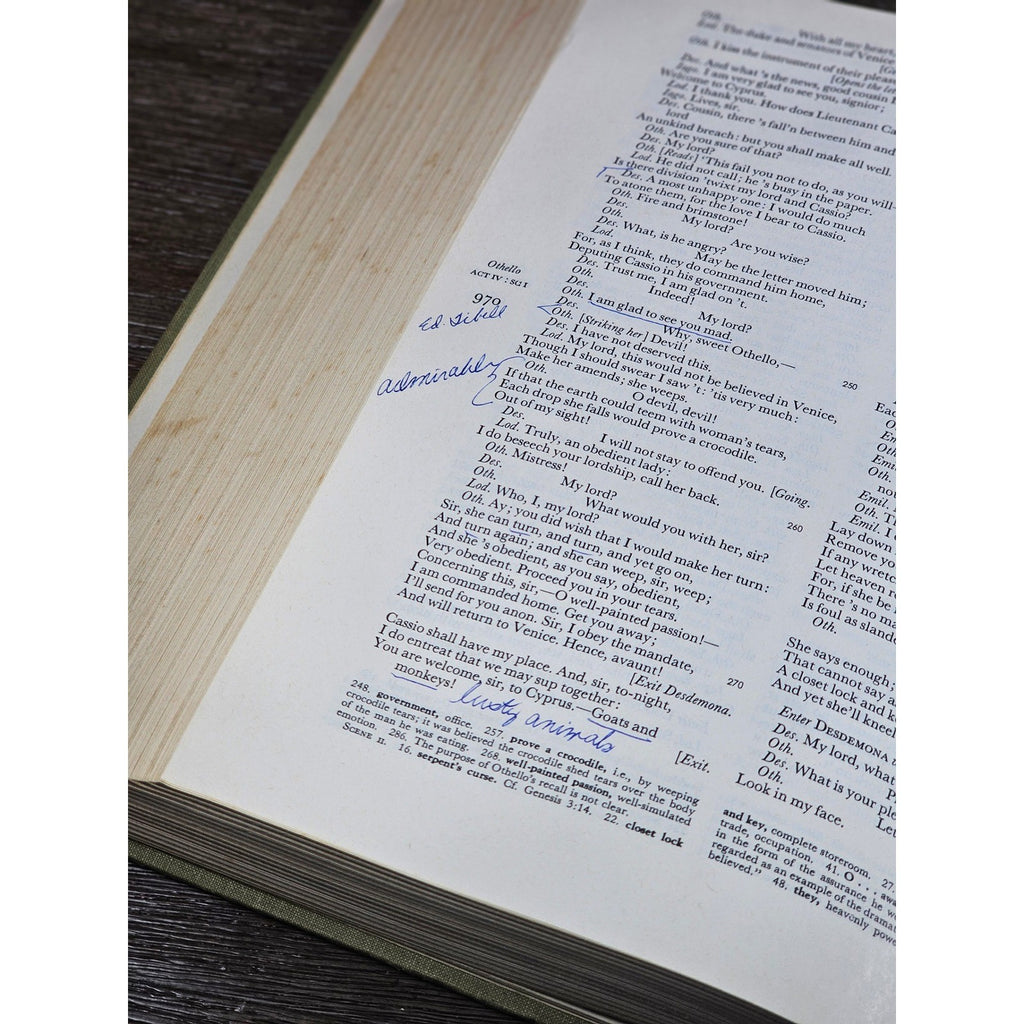 Oth. With all my heart,
Lod. The duke and senators of Venice
Oth. I kiss the instrument of their pleas
[Opens the let
Des. And what 's the news, good cousin
Iago. I am very glad to see you, signior;
Welcome to Cyprus.
Lod. I thank you. How does Lieutenant Ca
Iago. Lives, sir.
Des. Cousin, there 's fall'n between him and
lord
An unkind breach: but you shall make all well.
Oth. Are you sure of that?
Des. My lord?
Oth. [Reads] 'This fail you not to do, as you will—
Lod. He did not call; he's busy in the paper.
Is there division 'twixt my lord and Cassio?
Des. A most unhappy one: I would do much
To atone them, for the love I bear to Cassio.
Oth. Fire and brimstone!
Des. My lord?
Oth. Are you wise?
Des. What, is he angry?
Lod. May be the letter moved him;
For, as I think, they do command him home,
Deputing Cassio in his government.
Des. Trust me, I am glad on 't.
Oth. Indeed!
Des. My lord?
Oth. I am glad to see you mad.
Des. Why, sweet Othello,—
Oth. [Striking her] Devil!
Des. I have not deserved this.
Lod. My lord, this would not be believed in Venice,
250
Though I should swear I saw 't: 'tis very much:
Make her amends; she weeps.
Oth. O devil, devil!
If that the earth could teem with woman's tears,
Each drop she falls would prove a crocodile.
Out of my sight!
Des. I will not stay to offend you. [Going.
Lod. Truly, an obedient lady:
I do beseech your lordship, call her back.
Oth. Mistress!
Des. My lord?
Oth. What would you with her, sir?
260
Lod. Who, I, my lord?
Oth. Ay; you did wish that I would make her turn:
Sir, she can turn, and turn, and yet go on,
And turn again; and she can weep, sir, weep;
And she 's obedient, as you say, obedient,
Very obedient. Proceed you in your tears.
Concerning this, sir,—O well-painted passion!—
I am commanded home. Get you away;
I'll send for you anon. Sir, I obey the mandate,
And will return to Venice. Hence, avaunt!
[Exit Desdemona.
270
Cassio shall have my place. And, sir, to-night,
I do entreat that we may sup together:
You are welcome, sir, to Cyprus.—Goats and
monkeys!
[Exit.
lusty animals
Othello
ACT IV : SC I
970
admirably
248. government, office. 257. prove a crocodile, i.e., by weeping
crocodile tears; it was believed the crocodile shed tears over the body
of the man he was eating. 268. well-painted passion, well-simulated
emotion. 286. The purpose of Othello's recall is not clear.
SCENE II. 16. serpent's curse. Cf. Genesis 3:14. 22. closet lock
Eac
Em
Oth.
Emi
Oth.
not
Emil.
Oth. T
Emil. I
Lay down
Remove yo
If any wretc
Let heaven r
For, if she be
There 's no ma
Is foul as sland
Oth.
She says enough;
That cannot say a
A closet lock and k
And yet she'll kneel
Enter DESDEMONA
Des. My lord, what
Oth. P
Des. What is your ple
Oth. Let
Look in my face.
and key, complete storeroom. 27.
trade, occupation. 41. O . . . awa
in the form of the assurance he w
regarded as an example of the dramat
believed." 48. they, heavenly powe